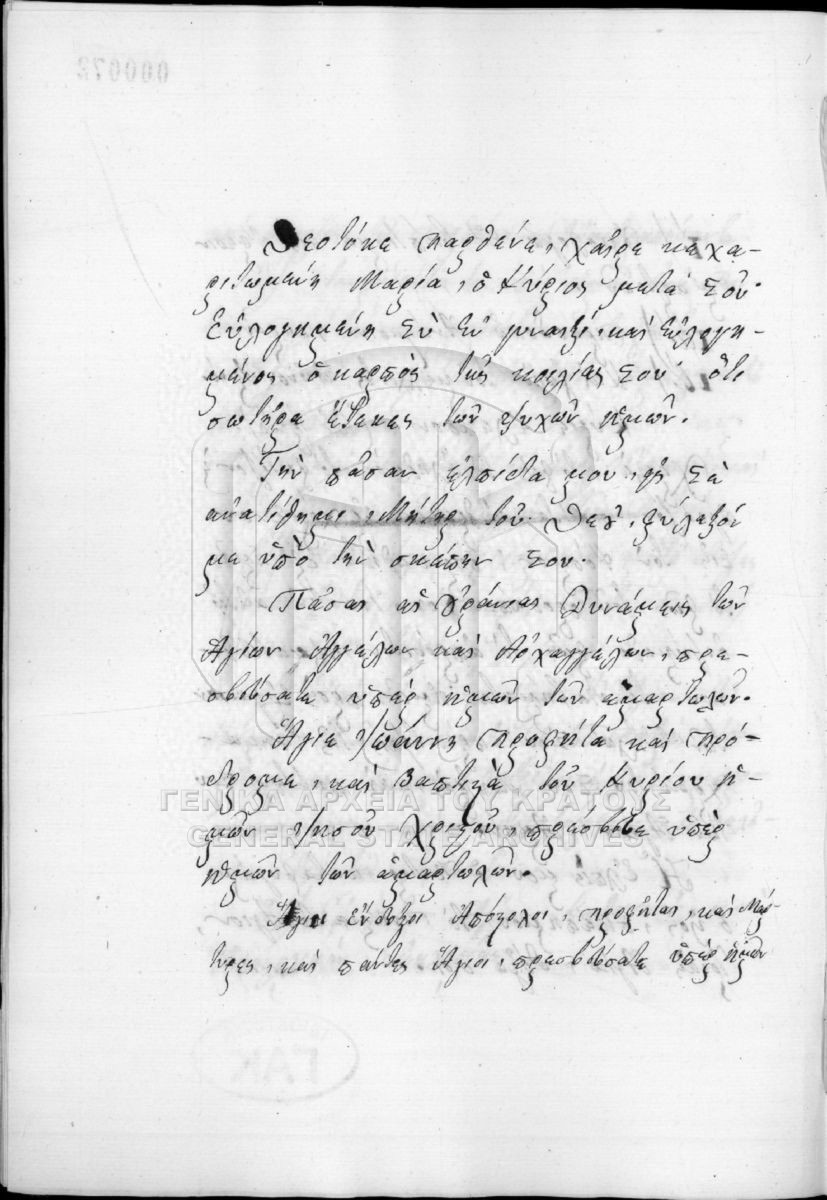 000072
Θεοτόκε παρθένε, χαῖρε κεχα-
ριτωμένη Μαρία, ὁ Κύριος μετὰ Σοῦ·
Εὐλογημένη Σὺ ἐν γυναιξί, καὶ εὐλογη-
μένος ὁ καρπὸς τῆς κοιλίας Σου· ὅτι
σωτῆρα ἔτεκες τῶν ψυχῶν ἡμῶν.
Τὴν πᾶσαν ἐλπίδα μου, εἰς Σὲ
ἀνατίθημι, Μήτηρ τοῦ Θεοῦ, φύλαξόν
με ὑπὸ τὴν σκέπην Σου.
Πᾶσαι αἱ Οὐράνιαι Δυνάμεις τῶν
Ἁγίων Ἀγγέλων καὶ Ἀρχαγγέλων, πρε-
σβεύσατε ὑπὲρ ἡμῶν τῶν ἁμαρτωλῶν.
Ἅγιε Ἰωάννη Προφῆτα καὶ Πρό-
δρομε, καὶ Βαπτιστὰ τοῦ Κυρίου ἡ-
μῶν Ἰησοῦ Χριστοῦ, πρέσβευε ὑπὲρ
ἡμῶν τῶν ἁμαρτωλῶν.
Ἅγιοι ἔνδοξοι Ἀπόστολοι, Προφῆται, καὶ Μάρ-
τυρες, καὶ πάντες Ἅγιοι, πρεσβεύσατε ὑπὲρ ἡμῶν
ΓΕΝΙΚΑ ΑΡΧΕΙΑ ΤΟΥ ΚΡΑΤΟΥΣ
GENERAL STATE ARCHIVES
ΓΑΚ